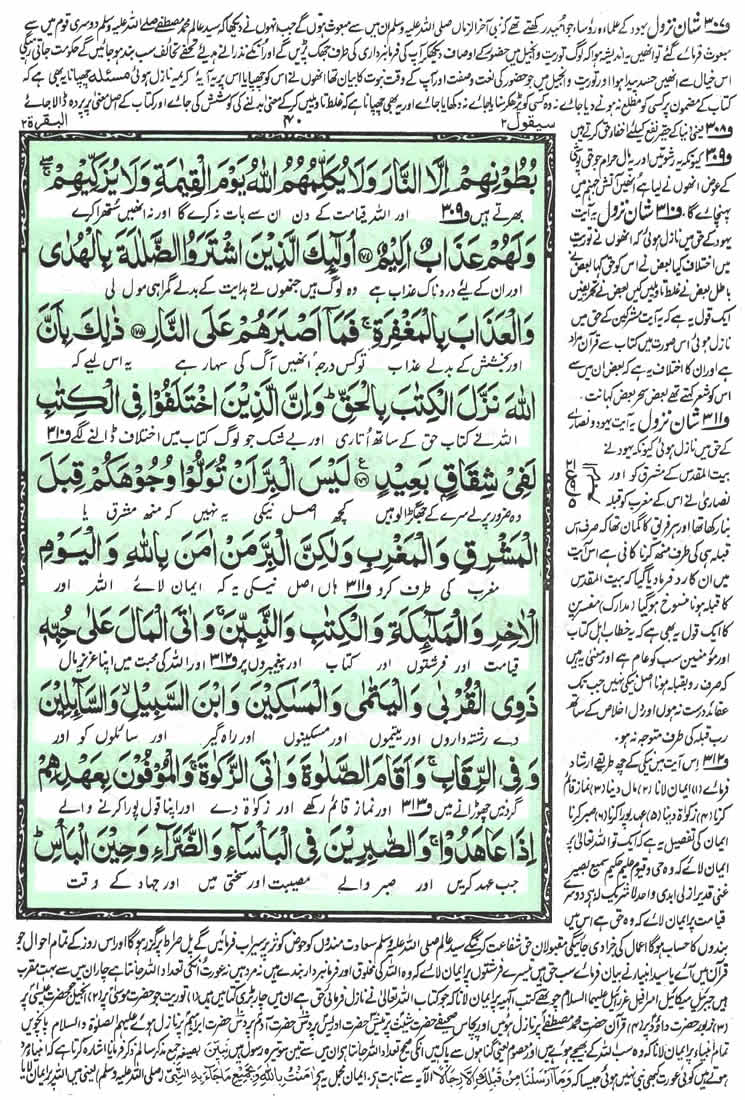 و۳۰۷ شان نزول یہود کے علماء و رؤساء جو امید رکھتے تھے کہ نبی آخر الزماں صلی اللہ علیہ وسلم ان میں سے مبعوث ہوں گے جب انہوں نے دیکھا کہ سید عالم محمد مصطفےٰ صلے اللہ علیہ وسلم دوسری قوم میں سے
مبعوث فرمائے گئے تو انھیں یہ اندیشہ ہوا کہ لوگ توریت و انجیل میں حضور کے اوصاف دیکھ کر آپ کی فرمانبرداری کی طرف جھک پڑیں گے اور انکے نذرانے ہدیئے تحفے تحائف سب بند ہو جائیں گے حکومت جاتی رہیگی
اس خیال سے انھیں حسد پیدا ہوا اور توریت و انجیل میں جو حضور کی نعت و صفت اور آپ کے وقت نبوت کا بیان تھا انھوں نے اس کو چھپایا اس پر یہ آیۂ کریمہ نازل ہوئی مسئلہ چھپانا یہ بھی ہے کہ
کتاب کے مضمون پر کسی کو مطلع نہ ہونے دیا جائے نہ وہ کسی کو پڑھ کر سنایا جائے نہ دکھایا جائے اور یہ بھی چھپانا ہے کہ غلط تاویلیں کرکے معنی بدلنے کی کوشش کی جائے اور کتاب کے اصل معنی پر پردہ ڈالا جائے
سیقول ۲ ۴۰ البقرۃ ۲
بُطُوْنِهِمْ اِلَّا النَّارَ وَلَا يُكَلِّمُهُمُ اللّٰهُ يَوْمَ الْقِيٰمَةِ وَلَا يُزَكِّيْهِمْ ۖۚ
بھرتے ہیں و۳۰۹ اور اللہ قیامت کے دن ان سے بات نہ کرے گا اور نہ انھیں ستھرا کرے
وَلَهُمْ عَذَابٌ اَلِيْمٌ ﴿۱۷۴﴾ اُولٰٓئِكَ الَّذِيْنَ اشْتَرَوُا الضَّلٰلَةَ بِالْهُدٰى
اور ان کے لیئے دردناک عذاب ہے وہ لوگ ہیں جنھوں نے ہدایت کے بدلے گمراہی مول لی
وَالْعَذَابَ بِالْمَغْفِرَةِ ۚ فَمَآ اَصْبَرَهُمْ عَلَى النَّارِ ﴿۱۷۵﴾ ذٰلِكَ بِاَنَّ
اور بخشش کے بدلے عذاب تو کس درجہ انھیں آگ کی سہار ہے یہ اس لیے کہ
اللّٰهَ نَزَّلَ الْكِتٰبَ بِالْحَقِّ ؕ وَاِنَّ الَّذِيْنَ اخْتَلَفُوْا فِي الْكِتٰبِ
اللہ نے کتاب حق کے ساتھ اُتاری اور بے شک جو لوگ کتاب میں اختلاف ڈالنے لگے و۳۱۰
لَفِيْ شِقَاقٍۭ بَعِيْدٍ ﴿۱۷۶﴾ لَيْسَ الْبِرَّ اَنْ تُوَلُّوْا وُجُوْهَكُمْ قِبَلَ
وہ ضرور پرلے سرے کے جھگڑالو ہیں کچھ اصل نیکی یہ نہیں کہ منھ مشرق یا
الْمَشْرِقِ وَالْمَغْرِبِ وَلٰكِنَّ الْبِرَّ مَنْ اٰمَنَ بِاللّٰهِ وَالْيَوْمِ
مغرب کی طرف کرو و۳۱۱ ہاں اصل نیکی یہ کہ ایمان لائے اللہ اور
الْاٰخِرِ وَالْمَلٰٓئِكَةِ وَالْكِتٰبِ وَالنَّبِيّٖنَ ۚ وَاٰتَى الْمَالَ عَلٰى حُبِّهٖ
قیامت اور فرشتوں اور کتاب اور پیغمبروں پر و۳۱۲ اور اللہ کی محبت میں اپنا عزیز مال
ذَوِي الْقُرْبٰى وَالْيَتٰمٰى وَالْمَسٰكِيْنَ وَابْنَ السَّبِيْلِ ۙ وَالسَّآئِلِيْنَ
دے رشتہ داروں اور یتیموں اور مسکینوں اور راہ گیر اور سائلوں کو اور
وَفِي الرِّقَابِ ۚ وَاَقَامَ الصَّلٰوةَ وَاٰتَى الزَّكٰوةَ ۚ وَالْمُوْفُوْنَ بِعَهْدِهِمْ
گردنیں چھوڑانے میں و۳۱۳ اور نماز قائم رکھے اور زکوٰۃ دے اور اپنا قول پورا کرنے والے
اِذَا عَاهَدُوْا ۚ وَالصّٰبِرِيْنَ فِي الْبَاْسَآءِ وَالضَّرَّآءِ وَحِيْنَ الْبَاْسِ ؕ
جب عہد کریں اور صبر والے مصیبت اور سختی میں اور جہاد کے وقت
و۳۰۸ یعنی دنیا کے حقیر نفع کیلئے اخفاء حق کرتے ہیں
و۳۰۹ کیونکہ یہ رشوتیں اور یہ مال حرام جو حق پوشی
کے عوض انھوں نے لیا ہے انھیں آتش جہنم میں
پہنچائے گا۔ و۳۱۰ شان نزول یہ آیت
یہود کے حق میں نازل ہوئی کہ انھوں نے توریت
میں اختلاف کیا بعض نے اس کو حق کہا بعض نے
باطل بعض نے غلط تاویلیں کیں بعض نے تحریفیں
ایک قول یہ ہے کہ یہ آیت مشرکین کے حق میں
نازل ہوئی اس صورت میں کتاب سے قرآن مراد
ہے اور ان کا اختلاف یہ ہے کہ بعض ان میں سے
اس کو شعر کہتے تھے بعض سحر بعض کہانت۔
و۳۱۱ شان نزول یہ آیت یہود و نصاریٰ
کے حق میں نازل ہوئی کیونکہ یہود نے
بیت المقدس کے مشرق کو اور
نصاریٰ نے اس کے مغرب کو قبلہ
بنا رکھا تھا اور ہر فریق کا گمان تھا کہ صرف اس
قبلہ ہی کی طرف منھ کرنا کافی ہے اس آیت
میں ان کا رد فرمادیا گیا کہ بیت المقدس
کا قبلہ ہونا منسوخ ہوگیا (مدارک) مفسرین
کا ایک قول یہ بھی ہے کہ یہ خطاب اہل کتاب
اور مؤمنین سب کو عام ہے اور معنی یہ ہیں
کہ صرف رو بقبلہ ہونا اصل نیکی نہیں جب تک
عقائد درست نہ ہوں اور دل اخلاص کے ساتھ
رب قبلہ کی طرف متوجہ نہ ہو۔
و۳۱۲ اس آیت میں نیکی کے چھ طریقے ارشاد
فرمائے (۱) ایمان لانا (۲) مال دینا (۳) نماز قائم
کرنا (۴) زکوٰۃ دینا (۵) عہد پورا کرنا (۶) صبر کرنا
ایمان کی تفصیل یہ ہے کہ ایک تو اللہ تعالیٰ پر
ایمان لائے کہ وہ حی و قیوم علیم حکیم سمیع بصیر
غنی قدیر ازلی ابدی واحد لا شریک لہ ہے دوسرے
قیامت پر ایمان لائے کہ وہ حق ہے اس میں
بندوں کا حساب ہوگا اعمال کی جزا دی جائیگی مقبولان حق شفاعت کرینگے سید عالم صلی اللہ علیہ وسلم سعادت مندوں کو حوض کوثر پر سیراب فرمائیں گے پل صراط پر گزر ہوگا اور اس روز کے تمام احوال جو
قرآن میں آئے یا سید انبیاء نے بیان فرمائے سب حق ہیں تیسرے فرشتوں پر ایمان لائے کہ وہ اللہ کی مخلوق اور فرمانبردار بندے ہیں نہ مرد ہیں نہ عورت انکی تعداد اللہ جانتا ہے چار ان میں سے بہت مقرب
ہیں جبرئیل میکائیل اسرافیل عزرائیل علیہم السلام چوتھے کتب الٰہیہ پر ایمان لانا کہ جو کتاب اللہ تعالیٰ نے نازل فرمائی حق ہے ان میں چار بڑی کتابیں ہیں (۱) توریت جو حضرت موسیٰ پر (۲) انجیل جو حضرت عیسیٰ پر
(۳) زبور حضرت داؤد پر (۴) قرآن حضرت محمد مصطفےٰ پر نازل ہوئیں اور پچاس صحیفے حضرت شیث پر تیس حضرت ادریس پر دس حضرت آدم پر دس حضرت ابراہیم پر نازل ہوئے علیہم الصلوٰۃ و السلام پانچویں
تمام انبیاء پر ایمان لانا کہ وہ سب اللہ کے بھیجے ہوئے ہیں اور معصوم یعنی گناہوں سے پاک ہیں انکی صحیح تعداد اللہ جانتا ہے ان میں سے تین سو تیرہ رسول ہیں نبیین بصیغہ جمع مذکر سالم ذکر فرمانا اشارہ کرتا ہے کہ انبیاء مرد
ہوتے ہیں کوئی عورت کبھی نبی نہیں ہوئی جیسا کہ وَمَآ اَرْسَلْنَا مِنْ قَبْلِكَ اِلَّا رِجَالًا الآیہ سے ثابت ہے۔ ایمان مجمل یہ ہے اٰمَنْتُ بِاللّٰهِ وَبِجَمِيْعِ مَا جَآءَ بِهِ النَّبِيُّ (صلی اللہ علیہ وسلم) یعنی میں اللہ پر ایمان لایا